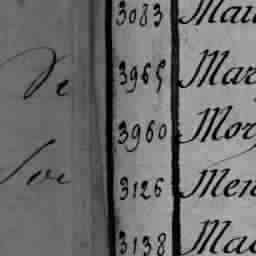 3083 Mau
3965 Mar
3960 Mor
3126 Men
3138 Mac